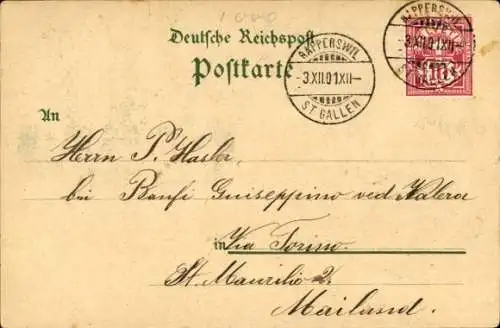 Deutsche Reichspost
Postkarte
RAPPERSWIL
-3.XII.01.XII-
ST. GALLEN
RAPPERSWIL
-3.XII.01.XII-
ST. GALLEN
An
Herrn P. Hasler,
bei Banfi Guiseppino ved Valera
in Via Torino.
St. Maurilio 2.
Mailand.